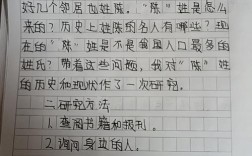 好几个邻居也姓陈。“陈”姓是怎么
来的?历史上姓陈的名人有哪些?现
在的“陈”姓是不是我国人口最多的
姓氏?带着这些问题,我对“陈”姓
的历史和现状作了一次研究。
二.研究方法
1.查阅书籍和报刊。
2.询问身边的人。